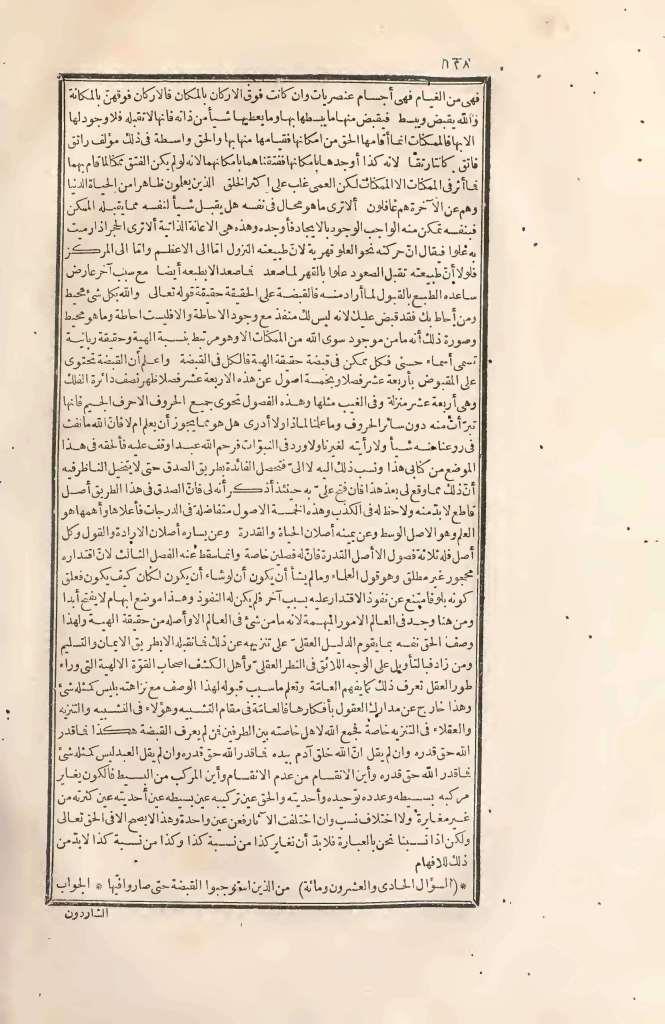 ١٣٨
فهى من الغمام فهى أجسام عنصريات وان كانت فوق الاركان بالمكان فالاركان فوقهنّ بالمكانة
والله يقبض ويبسط فيقبض منها ما يبسطها بها وما يعطيها شيأ من ذاته فانها لا تقبله فلا وجود لها
الا بها فالممكنات انما أقامها الحق من امكانها فقيامها منها بها والحق واسطة فى ذلك مؤلف راتق
فاتق كانتا رتقا لانه كذا أوجدها بامكانها ففتقناهما بامكانهما لانه لو لم يكن الفتق ممكنا لما قام بهما
فما أثر فى الممكنات الا الممكنات لكن العمى غاب على اكثر الخلق الذين يعلمون ظاهرا من الحياة الدنيا
وهم عن الآخرة هم غافلون ألا ترى ما هو محال فى نفسه هل يقبل شيأ لنفسه مما يقبله الممكن
فبنفسه تمكن منه الواجب الوجود بالايجاد فأوجده وهذه هى الاعانة الذاتية ألا ترى الحجر اذا رميت
به علوا فيقال انّ حركته نحو العلو قهرية لانّ طبيعته النزول امّا الى الاعظم وامّا الى المركز
فلولا أنّ طبيعته تقبل الصعود علوا بالقهر لما صعد فما صعد الا بطبعه أيضا مع سبب آخر عارض
ساعده الطبع بالقبول لما أراد منه فالقبضة على الحقيقة حقيقة قوله تعالى والله بكل شئ محيط
ومن أحاط بك فقد قبض عليك لانه ليس لك منفذ مع وجود الاحاطة والا فليست احاطة وما هو محيط
وصورة ذلك أنه ما من موجود سوى الله من الممكنات الا وهو مرتبط بنسبة الهية وحقيقة ربانية
تسمى أسماء حسنى فكل ممكن فى قبضة حقيقة الهية فالكل فى القبضة واعلم أن القبضة تحتوى
على المقبوض بأربعة عشر فصلا وبخمسة أصول عن هذه الاربعة عشر فصلا ظهر نصف دائرة الفلك
وهى أربعة عشر منزلة وفى الغيب مثلها وهذه الفصول تحوى جميع الحروف الا حرف الجيم فانها
تبرّأت منه دون سائر الحروف وما علمنا لماذا ولا أدرى هل هو مما يجوز أن يعلم ام لا فان الله ما نفث
فى روعنا منه شيأ ولا رأيته لغيرنا ولا ورد فى النبوّات فرحم الله عبدا وقف عليه فألحقه فى هذا
الموضع من كتابى هذا ونسب ذلك اليه لا الىّ فتحصل الفائدة بطريق الصدق حتى لا يتخيل الناظر فيه
أنّ ذلك مما وقع لى بعد هذا فان فتح علىّ به حينئذ أذكر أنه لى فانّ الصدق فى هذا الطريق أصل
قاطع لا بدّ منه ولاحظ له فى الكذب وهذه الخمسة الاصول متفاضلة فى الدرجات فأعلاها وأعمها هو
العلم وهو الاصل الوسط وعن يمينه أصلان الحياة والقدرة وعن يساره أصلان الارادة والقول وكل
أصل فله ثلاثة فصول الا أصل القدرة فانّ له فصلين خاصة وانما سقط عنه الفصل الثالث لانّ اقتداره
محجور غير مطلق وهو قول العلماء وما لم يشأ أن يكون أن لو شاء أن يكون لكان كيف يكون فعلق
كونه بلو فامتنع عن نفوذ الاقتدار عليه بسبب آخر فلم يكن له النفوذ وهذا موضع ابهام لا يفتح أبدا
ومن هنا وجد فى العالم الامور المبهمة لانه ما من شئ فى العالم الا وأصله من حقيقة الهية ولهذا
وصف الحق نفسه بما يقوم الدليل العقلىّ على تنزيهه عن ذلك فما نقبله الا بطريق الايمان والتسليم
ومن زاد فبالتأويل على الوجه اللائق فى النظر العقلىّ وأهل الكشف اصحاب القوّة الالهية التى وراء
طور العقل تعرف ذلك كما يفهم العامّة وتعلم ما سبب قبوله لهذا الوصف مع نزاهته بليس كمثله شئ
وهذا خارج عن مدارك العقول بأفكارها فالعامّة فى مقام التشبيه وهؤلاء فى التشبيه والتنزيه
والعقلاء فى التنزيه خاصة فجمع الله لاهل خاصته بين الطرفين فمن لم يعرف القبضة هكذا فما قدر
الله حق قدره وان لم يقل انّ الله خلق آدم بيده فما قدر الله حق قدره وان لم يقل العبد ليس كمثله شئ
فما قدر الله حق قدره وأين الانقسام من عدم الانقسام وأين المركب من البسيط فالكون يغاير
مركبه بسيطه وعدده توحيده وأحديته والحق عين تركيبه عين بسيطه عين أحديته عين كثرته من
غير مغايرة ولا اختلاف نسب وان اختلفت الآثار فعن عين واحدة وهذا لا يصح الا فى الحق تعالى
ولكن اذا نسبنا نحن بالعبارة فلا بدّ أن نغاير كذا من نسبة كذا وكذا من نسبة كذا لا بدّ من
ذلك للافهام
* (السؤال الحادى والعشرون ومائة) من الذين استوجبوا القبضة حتى صاروا فيها * الجواب
الشاردون